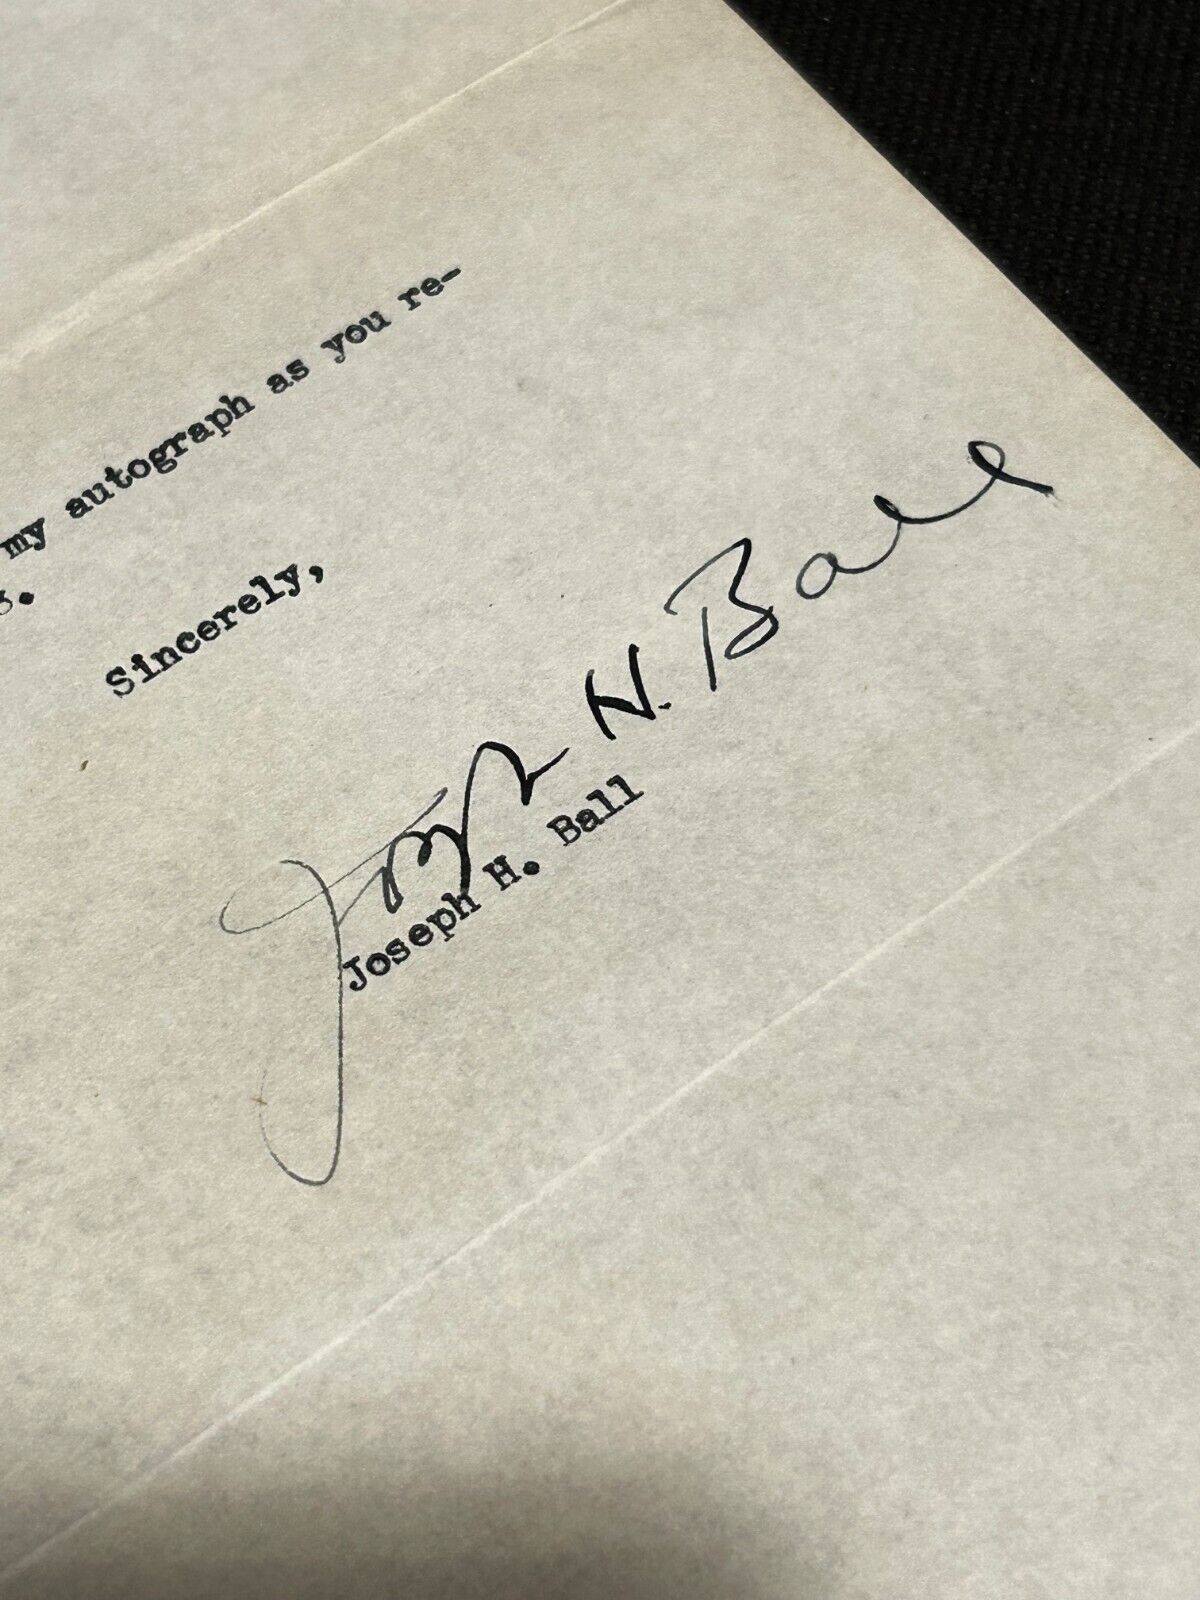 my autograph as you re-
s.
Sincerely,
Joseph H. Ball
Joseph H. Ball